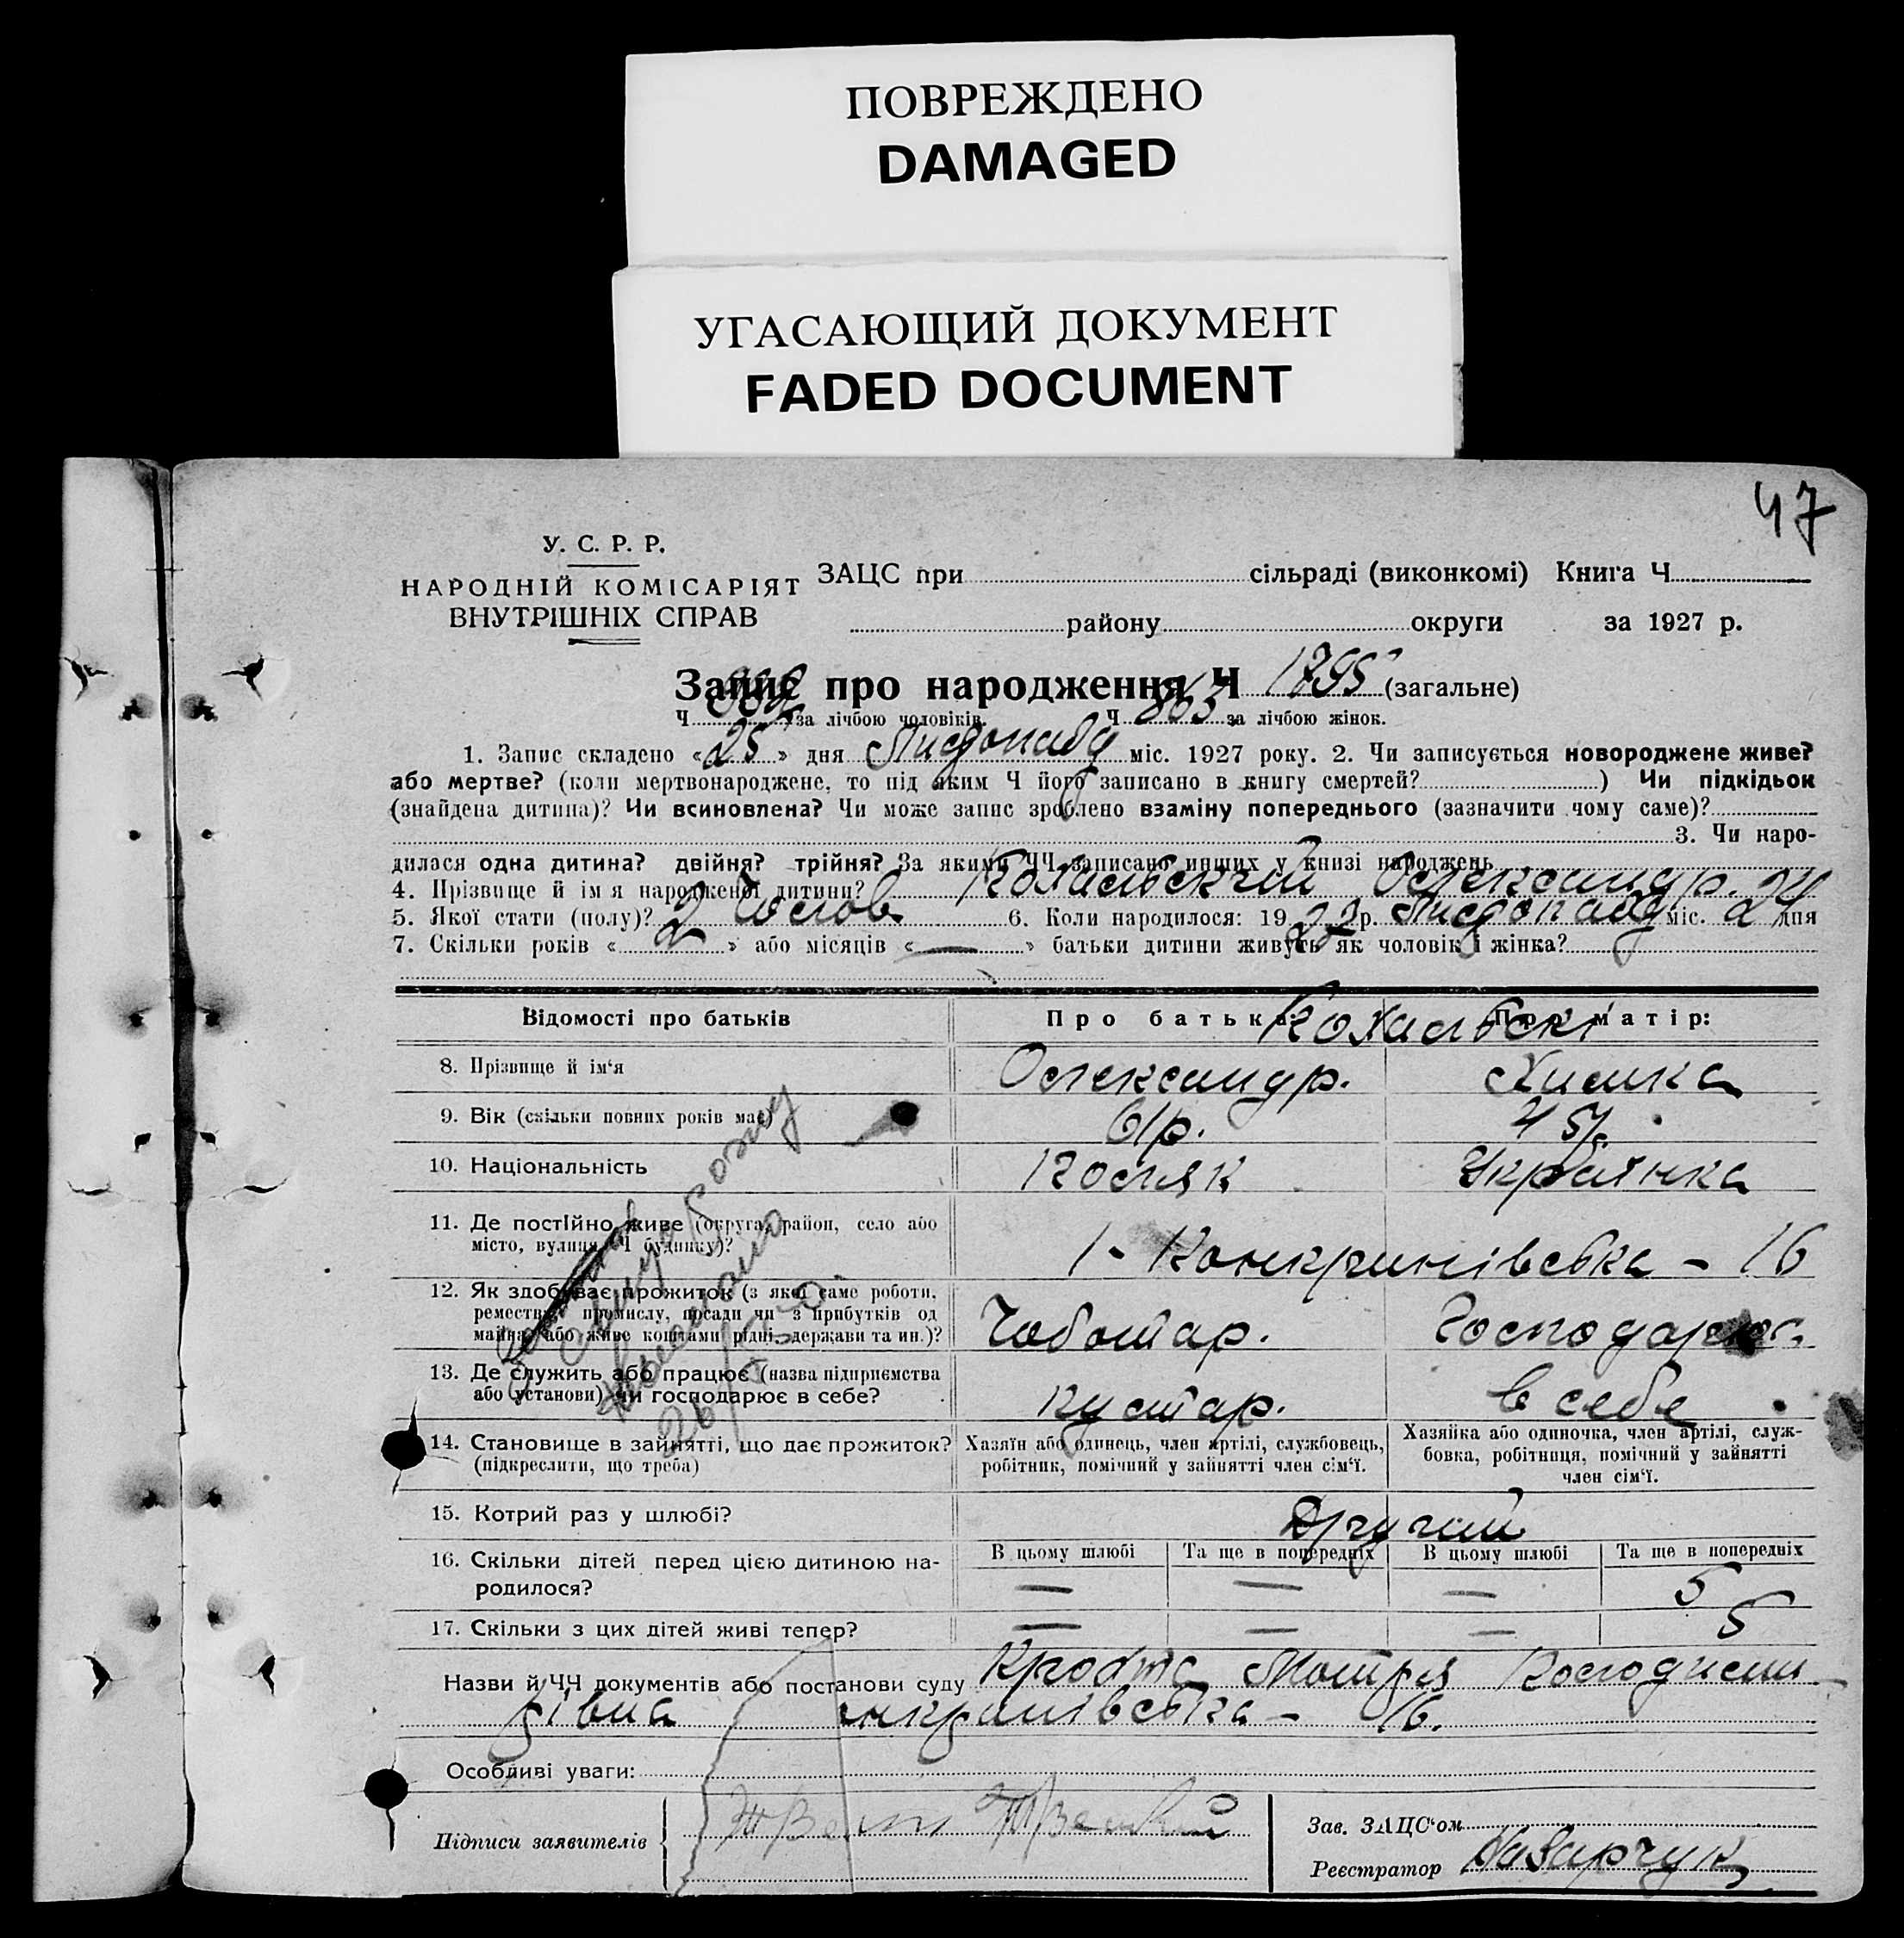 ПОВРЕЖДЕНО
DAMAGED
УГАСАЮЩИЙ ДОКУМЕНТ
FADED DOCUMENT
47
У. С. Р. Р.
НАРОДНІЙ КОМІСАРІЯТ
ВНУТРІШНІХ СПРАВ
ЗАЦС при сільраді (виконкомі) Книга Ч
району округи за 1927 р.
Запис про народження Ч 1795 (загальне)
Ч за лічбою чоловіків. Ч 863 за лічбою жінок.
1. Запис складено «25» дня Листопада міс. 1927 року. 2. Чи записується новороджене живе?
або мертве? (коли мертвонароджене, то під яким Ч його записано в книгу смертей? ) Чи підкідьок
(знайдена дитина)? Чи всиновлена? Чи може запис зроблено взаміну попереднього (зазначити чому саме)?
3. Чи наро-
дилася одна дитина? двійня? трійня? За якими ЧЧ записано инших у книзі народжень
4. Прізвище й ім я народженої дитини? Олександр.
5. Якої стати (полу)? 2 Чолов. 6. Коли народилося: 1927р. Листопада міс. 24 дня
7. Скільки років « 2 » або місяців « — » батьки дитини живуть як чоловік і жінка?
Відомості про батьків
Про батька: Про матір:
8. Прізвище й ім‘я
Олександр. Химка
9. Вік (скільки повних років має)
61р. 45р.
10. Національність
Поляк Українка
11. Де постійно живе (округа, район, село або
місто, вулиця, Ч будинку)?
1 - Конкринівська - 16
12. Як здобуває прожиток (з якої саме роботи,
ремества, промислу, посади чи з прибутків од
майна, або живе коштами рідні, держави та ин.)?
Чоботар. Господарює
13. Де служить або працює (назва підприємства
або установи) чи господарює в себе?
кустар. в себе
14. Становище в зайнятті, що дає прожиток?
(підкреслити, що треба)
Хазяїн або одинець, член артілі, службовець,
робітник, помічний у зайнятті член сім‘ї.
Хазяйка або одиночка, член артілі, служ-
бовка, робітниця, помічний у зайнятті
член сім‘ї.
15. Котрий раз у шлюбі?
Другий
16. Скільки дітей перед цією дитиною на-
родилося?
В цьому шлюбі Та ще в попередніх В цьому шлюбі Та ще в попередніх
— — — 5
17. Скільки з цих дітей живі тепер?
— — — 5
Назви й ЧЧ документів або постанови суду Мотря
нкринівська - 16.
Особливі уваги:
Підписи заявителів
Зав. ЗАЦС‘ом
Реєстратор Назарчук